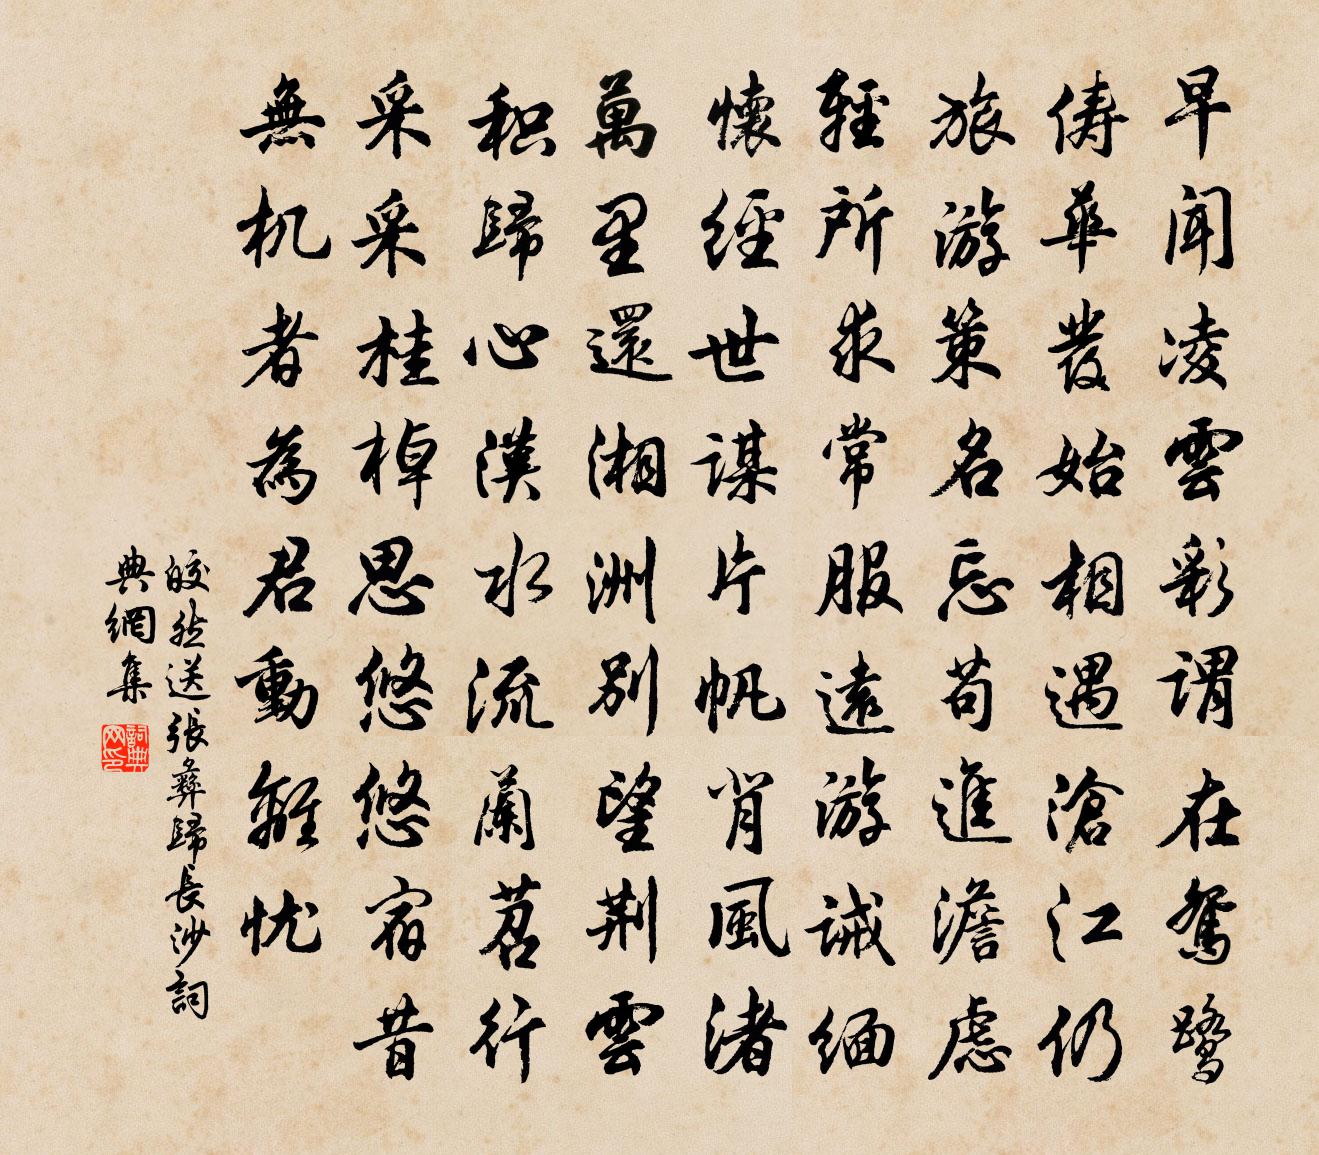 早闻凌雲彩謂在鴛鷺
俦華發始相遇滄江仍
旅游策名忘苟進澹慮
輕所求常服遠游诫缅
懷經世謀片帆背風渚
萬里還湘洲别望荆雲
积歸心漢水流蘭苕行
采采桂棹思悠悠宿昔
無机者為君動離忧
皎然送張彝歸長沙詞
典網集
詞典网印